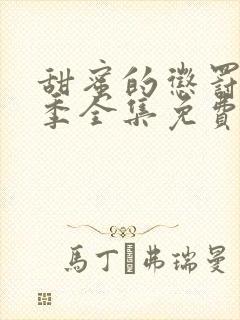 甜蜜的懲罰
季全集免費
馬丁·弗瑞曼